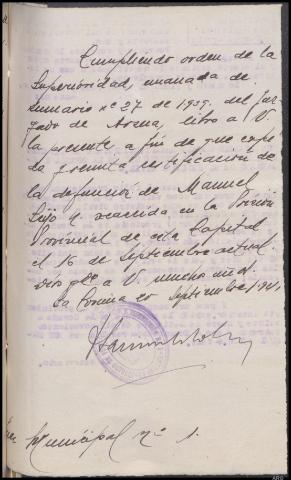 Cumpliendo orden de la
Superioridad, emanada de
sumario nº 27 de 1939 del Juz-
gado de Arzua, libro a V
la presente a fin de que expi-
da y remita certificación de
la defunción de Manuel
ocurrida en la Prisión
Provincial de esta Capital
el 16 de Septiembre actual.
Dios gde a V. muchos años.
La Coruña Septiembre 1941
Municipal nº 1.